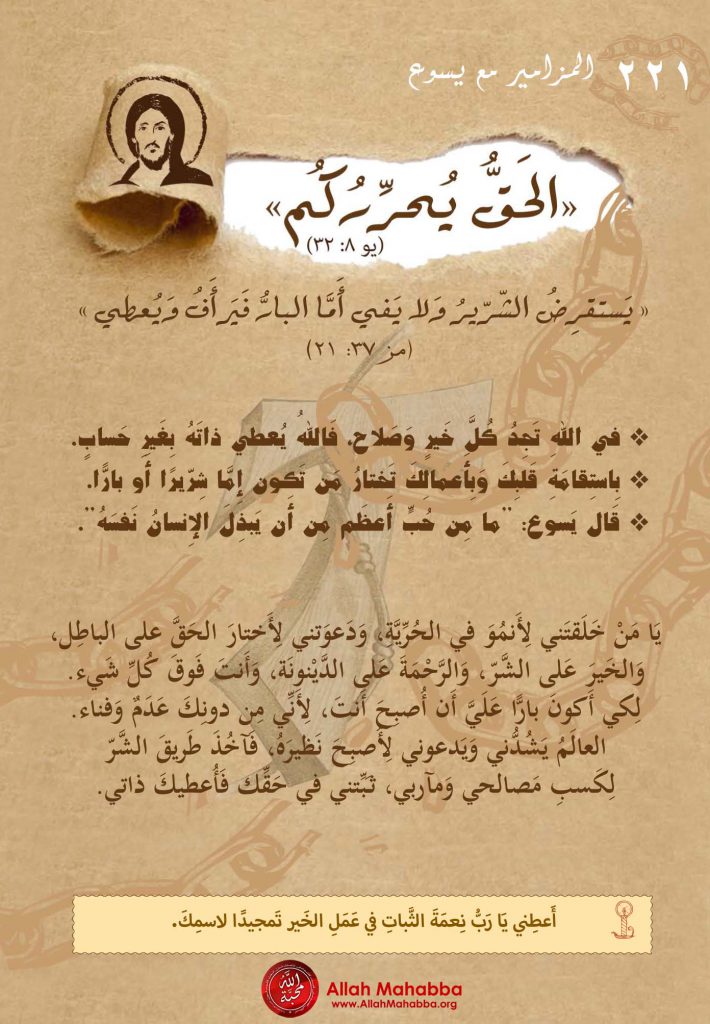 ٢٢١ المزامير مع يسوع
«الحَقُّ يُحرِّرُكُم»
(يو ٨: ٣٢)
« يَستقرِضُ الشّرّيرُ وَلا يَفي أَمَّا البارُّ فَيَرأَفُ وَيُعطي »
(مز ٣٧: ٢١)
❖ في اللهِ تَجِدُ كُلَّ خَيرٍ وَصَلاح، فَاللهُ يُعطي ذاتَهُ بِغَيرِ حَسابٍ.
❖ بِاستِقامَةِ قلبِكَ وَبأعمالِكَ تَختارُ مَن تَكون إمَّا شِرّيرًا أو بارًّا.
❖ قَال يَسوع: "ما مِن حُبٍّ أعظَم مِن أن يَبذِل الإنسانُ نَفسَهُ".
يَا مَنْ خَلَقتَني لِأَنمُوَ في الحُرِّيَّةِ، وَدَعوَتني لِأَختارَ الحَقَّ على الباطِل،
وَالخَيرَ عَلى الشَّرّ، وَالرَّحْمَةَ عَلى الدَّيْنونَة، وَأَنتَ فَوقَ كُلِّ شَيء.
لِكي أَكونَ بارًّا عَلَيَّ أَن أُصبِحَ أَنتَ، لِأَنِّي مِن دونِكَ عَدَمٌ وَفناء.
العالَمُ يَشُدُّني وَيَدعوني لِأَصبِحَ نَظيرَهُ، فَآخُذَ طَريقَ الشَّرّ
لِكَسبِ مَصالحي وَمآربي، ثبِّتني في حَقِّك فَأُعطيكَ ذاتي.
أَعطِني يَا رَبُّ نِعمَةَ الثَّباتِ في عَمَلِ الخَير تَمجيدًا لاسمِكَ.
الله محبة
Allah Mahabba
www.AllahMahabba.org